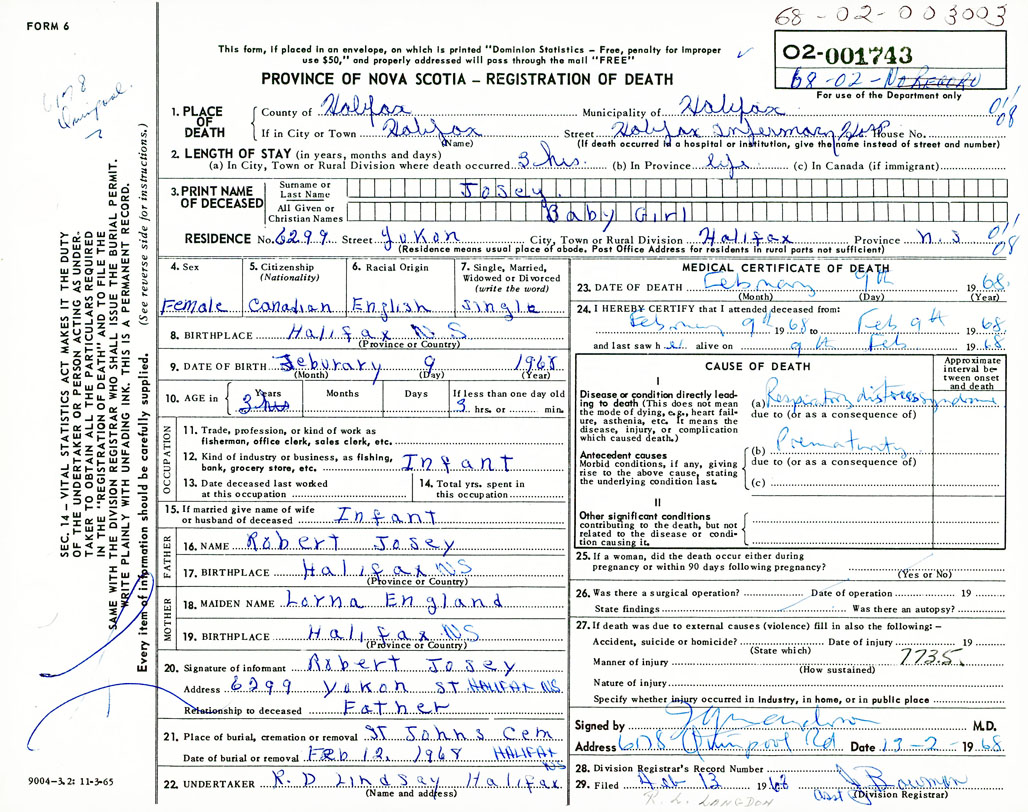 FORM 6
68-02-003003
This form, if placed in an envelope, on which is printed "Dominion Statistics – Free, penalty for improper
use $50," and properly addressed will pass through the mail "FREE"
O2-001743
68-02-No RECORD
For use of the Department only
PROVINCE OF NOVA SCOTIA – REGISTRATION OF DEATH
6178
Quinpool
1. PLACE OF DEATH
County of Halifax Municipality of Halifax 01/08
If in City or Town Halifax Street Halifax Infermary Hosp House No.
(Name) (If death occurred in a hospital or institution, give the name instead of street and number)
2. LENGTH OF STAY (in years, months and days)
(a) In City, Town or Rural Division where death occurred 3 hrs. (b) In Province life (c) In Canada (if immigrant)
3. PRINT NAME OF DECEASED
Surname or Last Name Josey
All Given or Christian Names Baby Girl
RESIDENCE No. 6299 Street Yukon City, Town or Rural Division Halifax Province N.S 01/08
(Residence means usual place of abode. Post Office Address for residents in rural parts not sufficient)
4. Sex
Female
5. Citizenship
(Nationality)
Canadian
6. Racial Origin
English
7. Single, Married,
Widowed or Divorced
(write the word)
Single
8. BIRTHPLACE Halifax N.S
(Province or Country)
9. DATE OF BIRTH Feburary 9 1968
(Month) (Day) (Year)
10. AGE in
Years Months Days If less than one day old
3 hrs 3 hrs. or min.
OCCUPATION
11. Trade, profession, or kind of work as
fisherman, office clerk, sales clerk, etc.
12. Kind of industry or business, as fishing,
bank, grocery store, etc. Infant
13. Date deceased last worked
at this occupation
14. Total yrs. spent in
this occupation
15. If married give name of wife
or husband of deceased Infant
FATHER
16. NAME Robert Josey
17. BIRTHPLACE Halifax NS
(Province or Country)
MOTHER
18. MAIDEN NAME Lorna England
19. BIRTHPLACE Halifax NS
(Province or Country)
20. Signature of informant Robert Josey
Address 6299 Yukon ST HALIFAX NS
Relationship to deceased Father
21. Place of burial, cremation or removal St Johns Cem
Date of burial or removal Feb 12, 1968 HALIFAX NS
22. UNDERTAKER R. D Lindsay Halifax
(Name and address)
MEDICAL CERTIFICATE OF DEATH
23. DATE OF DEATH February 9th 1968
(Month) (Day) (Year)
24. I HEREBY CERTIFY that I attended deceased from:
February 9th 1968 to Feb 9th 1968
and last saw her alive on 9th Feb 1968
CAUSE OF DEATH
Approximate
interval be-
tween onset
and death
I
Disease or condition directly lead-
ing to death (This does not mean
the mode of dying, e.g., heart fail-
ure, asthenia, etc. It means the
disease, injury, or complication
which caused death.)
(a) Respiratory distress syndrome
due to (or as a consequence of)
Antecedent causes
Morbid conditions, if any, giving
rise to the above cause, stating
the underlying condition last.
(b) Prematurity
due to (or as a consequence of)
(c)
II
Other significant conditions
contributing to the death, but not
related to the disease or condi-
tion causing it.
25. If a woman, did the death occur either during
pregnancy or within 90 days following pregnancy?
(Yes or No)
26. Was there a surgical operation? Date of operation 19
State findings Was there an autopsy?
27. If death was due to external causes (violence) fill in also the following:–
Accident, suicide or homicide? Date of injury 19
(State which)
Manner of injury 773.5.
(How sustained)
Nature of injury
Specify whether injury occurred in Industry, in home, or in public place
Signed by M.D.
Address 6178 Quinpool Rd Date 13-2-1968
28. Division Registrar's Record Number
29. Filed Feb 13 1968 J Bowman
asst (Division Registrar)
K. L. LANGDON
SEC. 14 – VITAL STATISTICS ACT MAKES IT THE DUTY
OF THE UNDERTAKER OR PERSON ACTING AS UNDER-
TAKER TO OBTAIN ALL THE PARTICULARS REQUIRED
IN THE "REGISTRATION OF DEATH" AND TO FILE THE
SAME WITH THE DIVISION REGISTRAR WHO SHALL ISSUE THE BURIAL PERMIT.
WRITE PLAINLY WITH UNFADING INK. THIS IS A PERMANENT RECORD.
Every item of information should be carefully supplied. (See reverse side for instructions.)
9004-3.2: 11-3-65